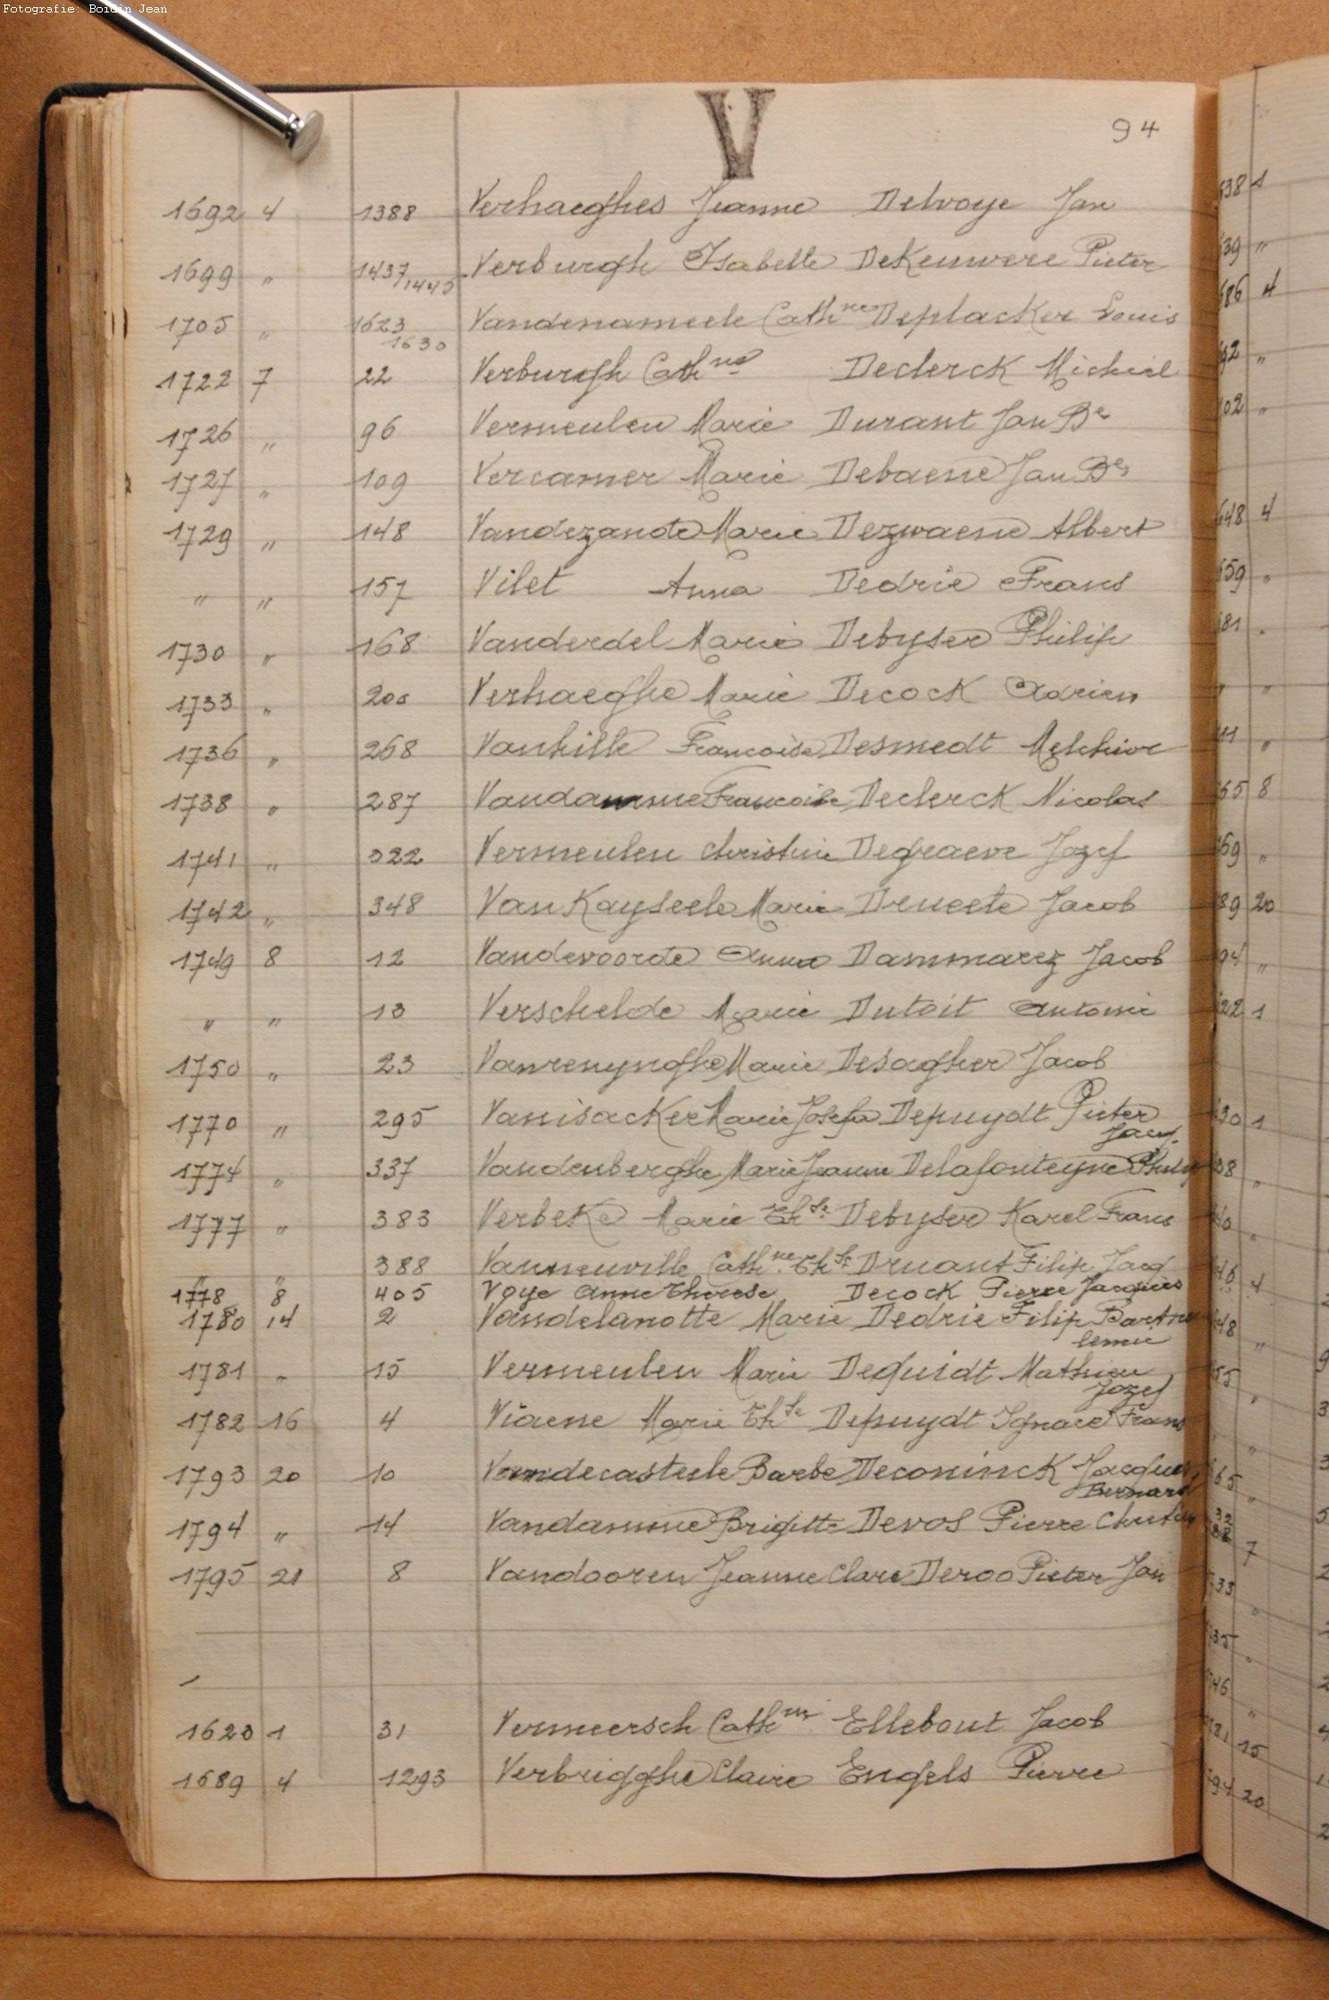 Fotografie: Boidin Jean
V
94
1692 4 1388 Verhaeghes Jeanne Delvoye Jan
1699 " 1437/1445 Verburgh Isabelle DeKeuwere Pieter
1705 " 1623 Vandenameele Cathne Deplacker Louis
1630
1722 7 22 Verburgh Cathne Declerck Michiel
1726 " 96 Vermeulen Marie Durant Jan Bte
1727 " 109 Vercamer Marie Debaene Jan Bte
1729 " 148 Vandezande Marie Dezwaene Albert
" " 157 Vilet Anna Dedrie Frans
1730 " 168 Vanderdel Marie Debyser Philip
1733 " 200 Verhaeghe Marie Decock Adrien
1736 " 268 Vanhille Francoise Desmedt Melchior
1738 " 287 Vandamme Francoise Declerck Nicolas
1741 " 322 Vermeulen Christine Degraeve Jozef
1742 " 348 Van Kayseele Marie Drueele Jacob
1749 8 12 Vandevoorde Anna Dammarez Jacob
" " 13 Verschelde Marie Dutoit Antonie
1750 " 23 Vanrenynghe Marie Desagher Jacob
1770 " 295 Vanisacker Marie Josepha Depuydt Pieter
Jacq.
1774 " 337 Vandenberghe Marie Jeanne Delafonteyne Philip
1777 " 383 Verbeke Marie Thse Debyser Karel Frans
" " 388 Vanneuville Cathne Thse Druant Filip Jacq
1778 8 405 Voye Anne Therese Decock Pierre Jacques
1780 14 2 Vandelanotte Marie Dedrie Filip Bartho
lemie
1781 " 15 Vermeulen Marie Dequidt Mathieu
Jozef
1782 16 4 Viaene Marie Thse Depuydt Ignace Frans
1793 20 10 Vandecasteele Barbe Deconinck Jacques
Bernard
1794 " 14 Vandamme Brigitte Devos Pierre
1795 21 8 Vandooren Jeanne Clare Deroo Pieter Jan
1620 1 31 Vermeersch Cathne Ellebout Jacob
1689 4 1293 Verbrigghe Claire Engels Pierre